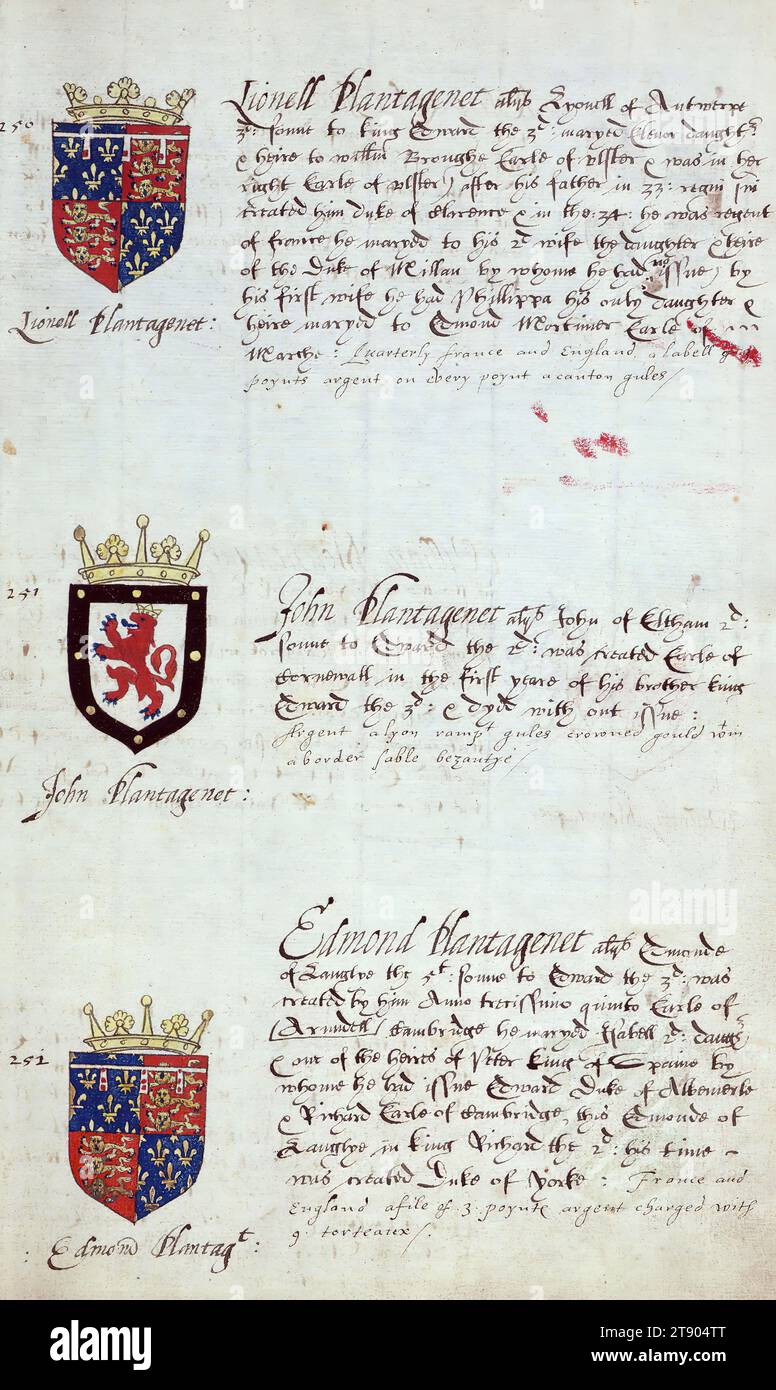 250
Lionell Plantagenet als Lyonell of Antwerpe
3d: sonne to king Edward the 3d: maryed Elenor daught:
& heire to Willm Broughe Earle of Ulster & was in her
right Earle of Ulster) after his father in 33: regni sui
created him Duke of Clarence & in the :34: he was regent
of france he maryed to his 2d wife the daughter & heire
of the Duke of Millan by whome he had no issue) by
his first wife he had Phillippa his only daughter &
heire maryed to Edmond Mortimer Earle of
Marche: Quarterly france and England a labell
poynts argent on every poynt a canton gules/
Lionell Plantagenet:
251
John Plantagenet als John of Eltham 2d:
sonne to Edward the 2d: was created Earle of
Cornewall in the first yeare of his brother king
Edward the 3d: & dyed with out issue:
Argent a lyon rampt gules crowned gould wthin
a border sable bezantye/
John Plantagenet:
251
Edmond Plantagenet als Edmonde
of Langlye the 5t: sonne to Edward the 3d: was
created by him Anno trecissimo quinto Earle of
(Arundell) Cambridge he maryed Isabell 2d: daug:
& one of the heires of Peter king of Spaine by
whome he had issue Edward Duke of Albemerle
& Richard Earle of Cambridge, this Edmonde of
Langlye in king Richard the 2d: his time -
was created Duke of Yorke: France and
England a file of .3. poynts argent charged with
9: torteaux/.
: Edmond Plantagt:
alamy
alamy
Image ID: 2T904TT
www.alamy.com